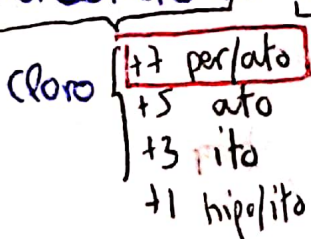 Cloro
+7 per/ato
+5 ato
+3 ito
+1 hipo/ito